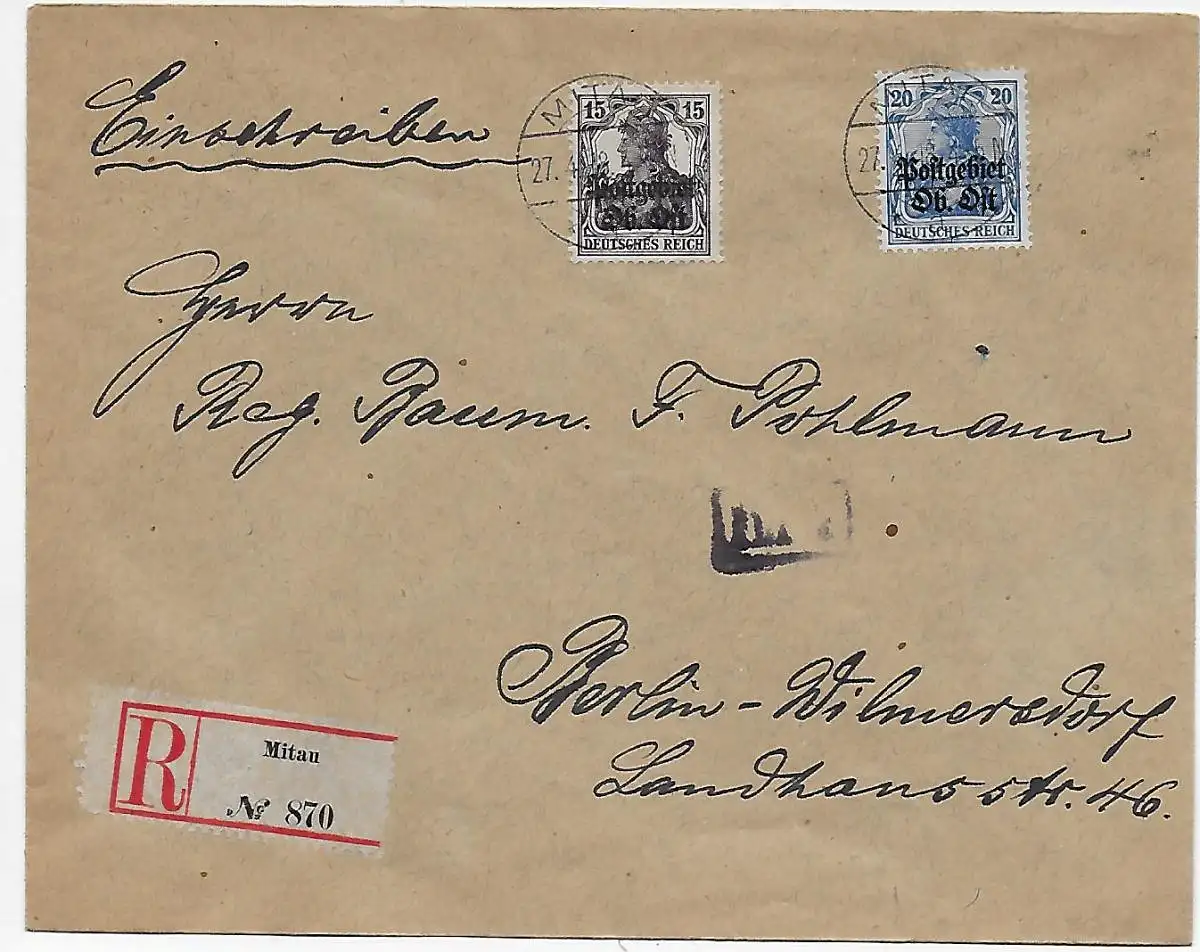 Einschreiben
MITAU
27. 4. 18
15 15
Postgebiet
Ob. Ost
DEUTSCHES REICH
MITAU
27.
20 20
Postgebiet
Ob. Ost
DEUTSCHES REICH
Herrn
Reg. Baum. F. Pohlmann
Berlin-Wilmersdorf
Landhausstr. 46.
R
Mitau
№ 870